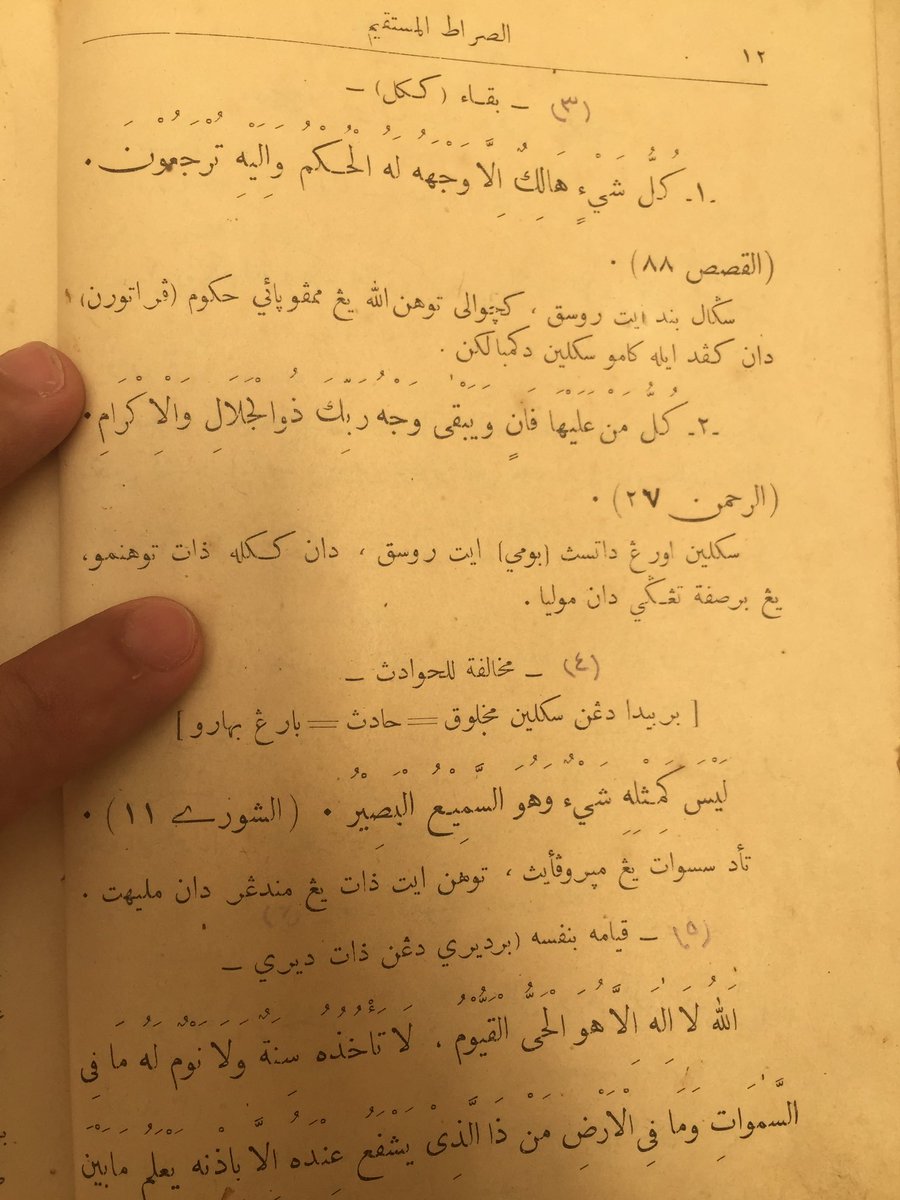 ١٢
الصراط المستقيم
(٣) ـ بقاء (ككل) ـ
ـ١ـ كُلُّ شَيْءٍ هَالِكٌ اِلَّا وَجْهَهُ لَهُ الْحُكْمُ وَاِلَيْهِ تُرْجَعُوْنَ ٠
(القصص ٨٨) ٠
سڬال بند ايت روسق ، كچوالى توهن الله يڠ ممڤوپائي حكوم (ڤراتورن)
دان كڤد ايله كامو سكلين دكمبالكن ٠
ـ٢ـ كُلُّ مَنْ عَلَيْهَا فَانٍ وَيَبْقٰى وَجْهُ رَبِّكَ ذُوالْجَلَالِ وَالْاِكْرَامِ ٠
(الرحمن ٢٧) ٠
سكلين اورڠ داتسڽ (بومي) ايت روسق ، دان ككله ذات توهنمو،
يڠ برصفة تڠݢي دان موليا ٠
(٤) ـ مخالفة للحوادث ـ
[ بربيدا دڠن سكلين مخلوق = حادث = بارڠ بهارو ]
لَيْسَ كَمِثْلِهِ شَيْءٌ وَهُوَ السَّمِيْعُ الْبَصِيْرُ ٠ (الشورے ١١) ٠
تأد سسوات يڠ ميروڤأيڽ ، توهن ايت ذات يڠ مندڠر دان مليهت ٠
(٥) ـ قيامه بنفسه (برديري دڠن ذات ديري ـ
اَللهُ لَا اِلٰهَ اِلَّا هُوَ الْحَىُّ الْقَيُّوْمُ ، لَا تَأْخُذُهُ سِنَةٌ وَلَا نَوْمٌ لَهُ مَا فِى
السَّمٰوَاتِ وَمَا فِى الْاَرْضِ مَنْ ذَا الَّذِىْ يَشْفَعُ عِنْدَهُ اِلَّا بِاِذْنِهِ يَعْلَمُ مَابَيْنَ